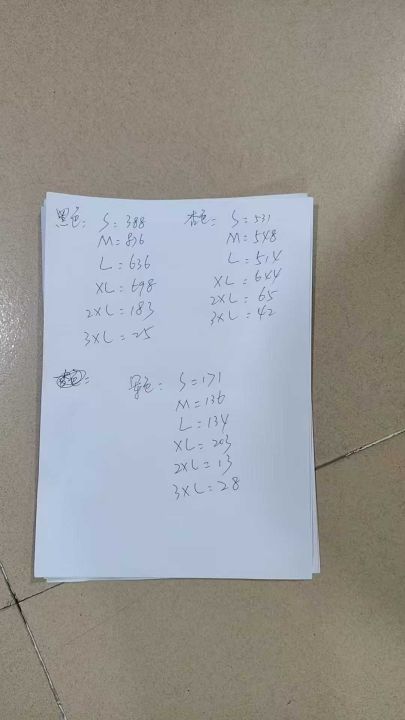 黑色: S=388
M=836
L=636
XL=698
2XL=183
3XL=25
杏色: S=531
M=548
L=514
XL=644
2XL=65
3XL=42
色: S=171
M=136
L=134
XL=203
2XL=13
3XL=28